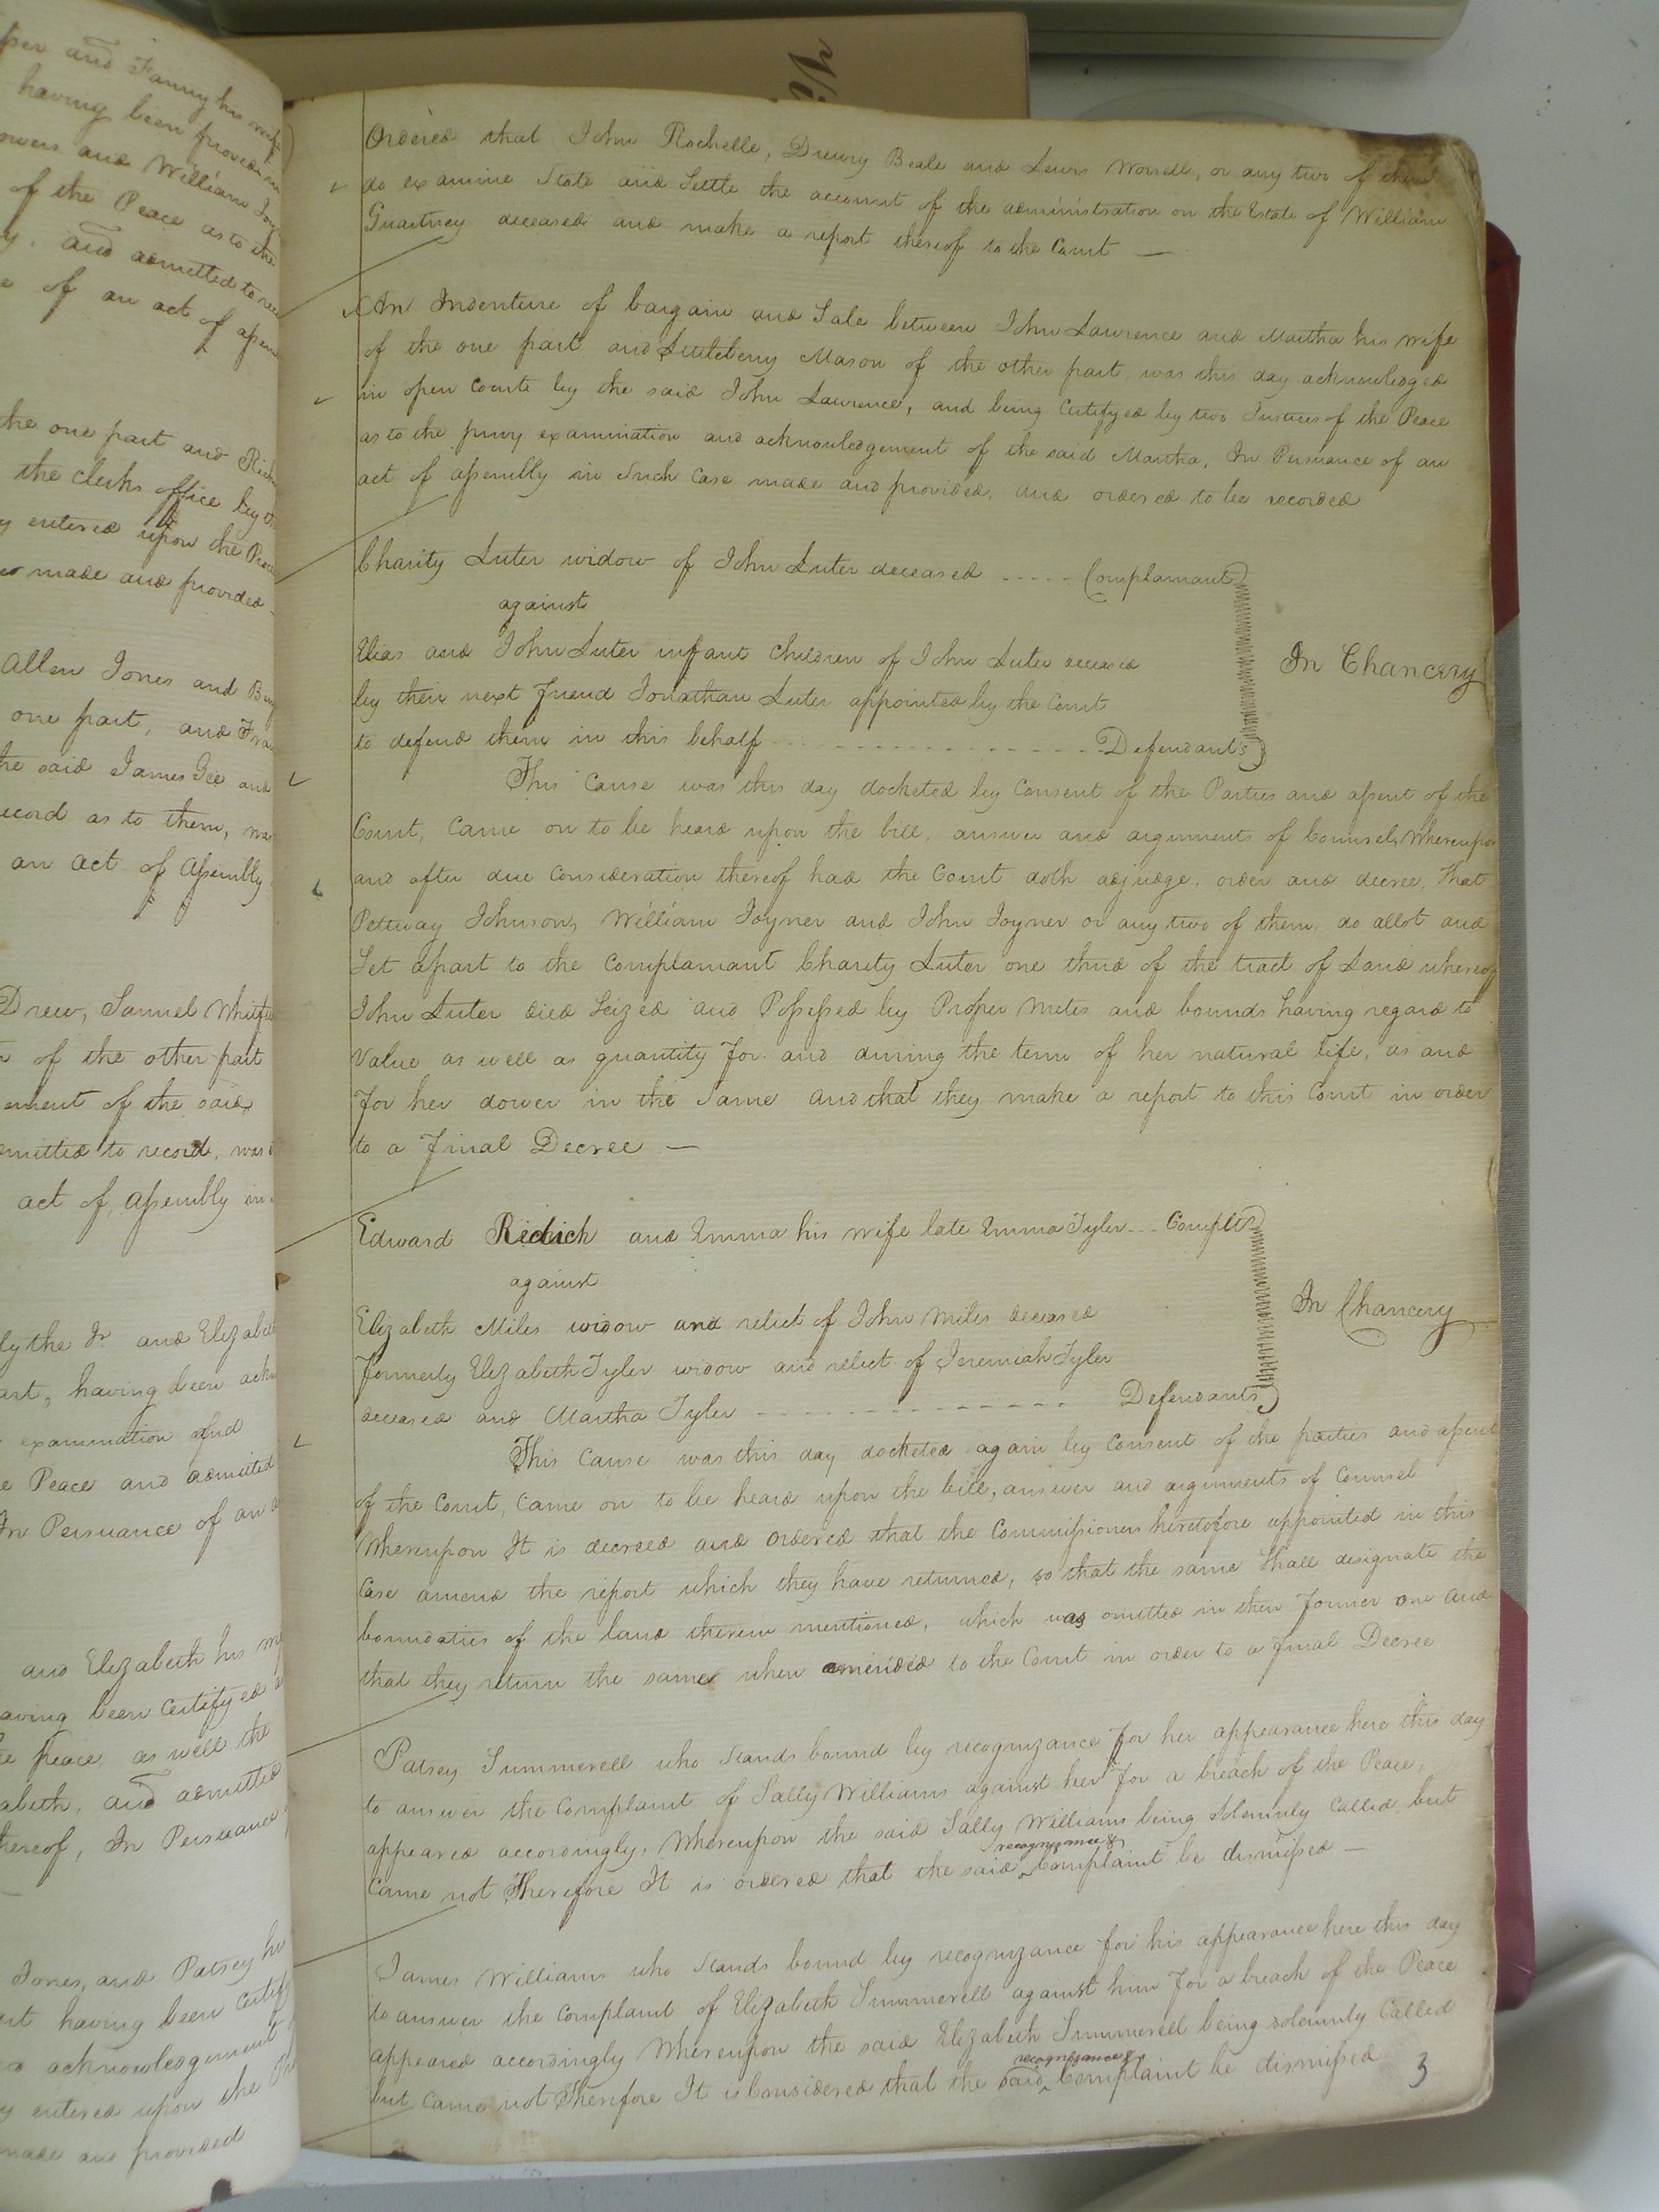 per and Fanny his wife
having been proved
and William
of the Peace as to the
and admitted to
of an act of assem
the one part and Rich
the clerks office by
entered upon the
made and provided
Allen Jones and
one part, and
he said James Gee and
record as to them, was
an act of Assembly
Drew, Samuel Whitfi
of the other part
ement of the said
mitted to record, was
act of Assembly in
lythe Jr. and Elizabeth
art, having been ackn
examination and
e Peace and admitted
In Persuance of an
and Elizabeth his
aving been Certifyed
e peace, as well the
abeth, and admitted
hereof, In Persuance
Jones, and Patsey his
rt having been Certif
acknowledgement
entered upon the
made and provided
Ordered that John Rochelle, Drewry Beale and Lewis Worrell, or any two of them
do examine State and Settle the account of the administration on the Estate of William
Guartney deceased and make a report thereof to the Court —
An Indenture of bargain and Sale between John Lawrence and Martha his wife
of the one part and Littleberry Mason of the other part, was this day acknowledged
in open Court by the said John Lawrence, and being Certifyed by two Justices of the Peace
as to the privy examination and acknowledgement of the said Martha, In Persuance of an
act of assembly in Such Case made and provided, and ordered to be recorded
Charity Luter widow of John Luter deceased ----- Complainant
against
Elias and John Luter infant Children of John Luter deceased
by their next Friend Jonathan Luter appointed by the Court
to defend them in this behalf --------------- Defendants
In Chancery
This Cause was this day docketed by Consent of the Parties and assent of the
Court, Came on to be heard upon the bill, answer and arguments of Counsel, Whereupon
and after due Consideration thereof had the Court doth adjudge, order and decree, That
Pettway Johnson, William Joyner and John Joyner or any two of them, do allot and
Set apart to the Complainant Charity Luter one third of the tract of Land whereof
John Luter died Seized and Possessed by Proper metes and bounds having regard to
Value as well as quantity For and during the term of her natural life, as and
For her dower in the Same and that they make a report to this Court in order
to a Final Decree —
Edward Ridich and Emma his wife late Emma Tyler --- Complts
against
Elizabeth Miles widow and relict of John Miles deceased
formerly Elizabeth Tyler widow and relict of Jeremiah Tyler
deceased and Martha Tyler --------------- Defendants
In Chancery
This Cause was this day docketed again by Consent of the parties and assent
of the Court, Came on to be heard upon the bill, answer and arguments of Counsel
Whereupon It is decreed and Ordered that the Commissioners heretofore appointed in this
Case amend the report which they have returned, so that the same Shall designate the
boundaties of the land therein mentioned, which was omitted in their Former one and
that they return the same when amended to the Court in order to a final Decree
Patsey Summerell who Stands bound by recognizance For her appearance here this day
to answer the Complaint of Sally Williams against her For a breach of the Peace,
appeared accordingly, Whereupon the said Sally Williams being Solemnly Called but
recognizance &
Came not Therefore It is ordered that the said Complaint be dismissed —
James Williams who Stands bound by recognizance for his appearance here this day
to answer the Complaint of Elizabeth Summerell against him For a breach of the Peace
appeared accordingly Whereupon the said Elizabeth Summerell being solemnly Called
recognizance &
but Came not Therefore It is Considered that the said Complaint be dismissed
3